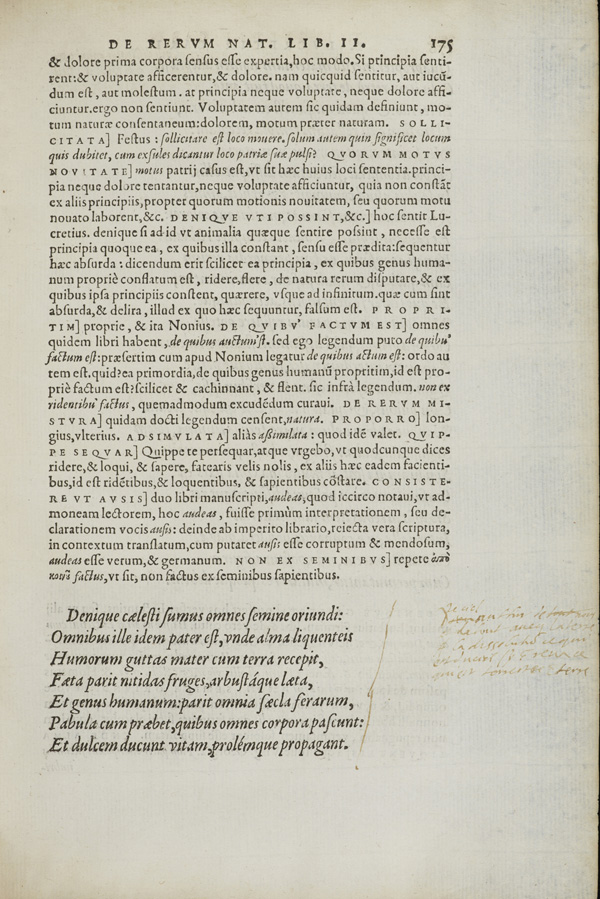 DE RERVM NAT. LIB. II. 175
& dolore prima corpora sensus esse expertia, hoc modo. Si principia senti-
rent: & voluptate afficerentur, & dolore. nam quicquid sentitur, aut iucũ-
dum est, aut molestum. at principia neque voluptate, neque dolore affi-
ciuntur. ergo non sentiunt. Voluptatem autem sic quidam definiunt, mo-
tum naturæ consentaneum: dolorem, motum præter naturam. SOLLI-
CITATA] Festus: sollicitare est loco mouere. solum autem quin significet locum
quis dubitet, cum exsules dicantur loco patriæ suæ pulsi? QVORVM MOTVS
NOVITATE] motus patrij casus est, vt sit hæc huius loci sententia. princi-
pia neque dolore tentantur, neque voluptate afficiuntur, quia non constãt
ex aliis principiis, propter quorum motionis nouitatem, seu quorum motu
nouato laborent, &c. DENIQVE VTI POSSINT, &c.] hoc sentit Lu-
cretius. denique si ad id vt animalia quæque sentire possint, necesse est
principia quoque ea, ex quibus illa constant, sensu esse prædita: sequentur
hæc absurda: dicendum erit scilicet ea principia, ex quibus genus huma-
num propriè conflatum est, ridere, flere, de natura rerum disputare, & ex
quibus ipsa principiis constent, quærere, vsque ad infinitum. quæ cum sint
absurda, & delira, illud ex quo hæc sequuntur, falsum est. PROPRI-
TIM] proprie, & ita Nonius. DE QVIBV' FACTVM EST] omnes
quidem libri habent, de quibus auctum'st. sed ego legendum puto de quibu'
factum est: præsertim cum apud Nonium legatur de quibus actum est: ordo au
tem est. quid? ea primordia, de quibus genus humanũ propritim, id est pro-
priè factum est? scilicet & cachinnant, & flent. sic infrà legendum. non ex
ridentibu' factus, quemadmodum excudẽdum curaui. DE RERVM MI-
STVRA] quidam docti legendum censent, natura. PROPORRO] lon-
gius, vlterius. ADSIMVLATA] aliàs aßimulata: quod idẽ valet. QVIP-
PE SEQVAR] Quippe te persequar, atque vrgebo, vt quodcunque dices
ridere, & loqui, & sapere, fatearis velis nolis, ex aliis hæc eadem facienti-
bus, id est ridẽtibus, & loquentibus, & sapientibus cõstare. CONSISTE-
RE VT AVSIS] duo libri manuscripti, audeas, quod iccirco notaui, vt ad-
moneam lectorem, hoc audeas, fuisse primùm interpretationem, seu de-
clarationem vocis ausis: deinde ab imperito librario, reiecta vera scriptura,
in contextum translatum, cum putaret ausis esse corruptum & mendosum,
audeas esse verum, & germanum. NON EX SEMINIBVS] repete
factus, vt sit, non factus ex seminibus sapientibus.
Denique cælesti sumus omnes semine oriundi:
Omnibus ille idem pater est, vnde alma liquenteis
Humorum guttas mater cum terra recepit,
Fæta parit nitidas fruges, arbustáque læta,
Et genus humanum: parit omnia sæcla ferarum,
Pabula cum præbet, quibus omnes corpora pascunt:
Et dulcem ducunt vitam, prolémque propagant.